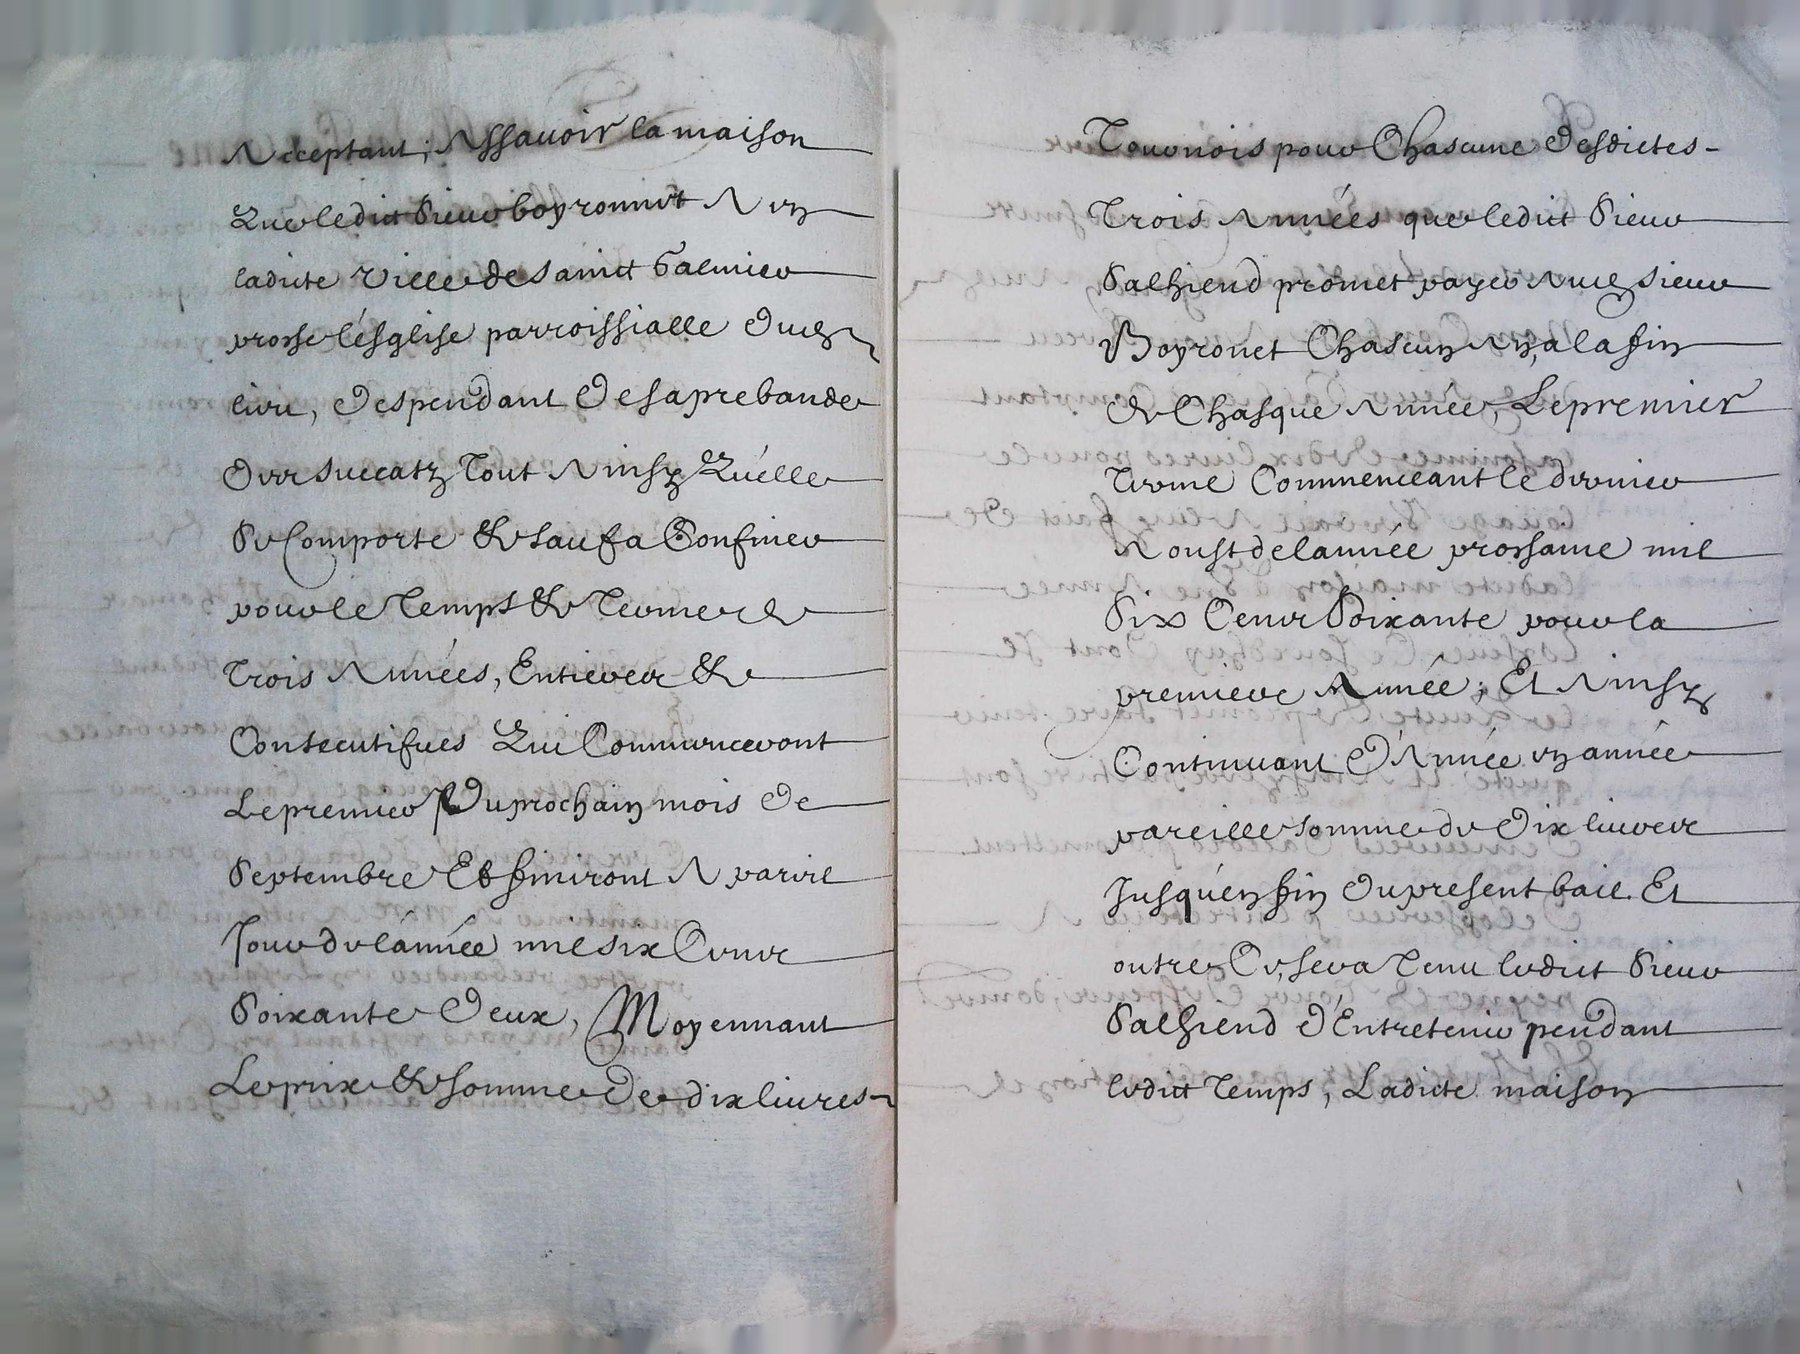 Acceptant; Assavoir la maison
Que ledict Sieur boyronnet A en
ladicte Ville de sainct Galmier
proche lésglise parroissialle dudt
lieu, despendant de sa prebande
Des succatz Tout Ainsy Quélle
Se Comporte & sauf a Confiner
pour le Temps & Terme de
Trois Années, Entieres &
Consecutifues Qui Commenceront
Le premier Du prochain mois de
Septembre Et finiront A pareil
Jour de lánnée mil six Cens
Soixante Deux, Moyennant
Le prix & somme de dix liures
Tournois pour Chascune desdictes
Trois Années que ledict Sieur
Palhiend promet payer Audt sieur
Boyronet Chascun An, a la fin
de Chasque Année, Le premier
Terme Commenceant le dernier
Aoust de lannée prochaine mil
Six Cens Soixante pour la
premiere Année; Et Ainsy
Continuant d'Année en année
pareille somme de Dix liures
Jusquén fin du present bail. Et
outre Ce, sera Tenu ledict Sieur
Palhiend d'Entretenir pendant
ledict Temps, Ladicte maison